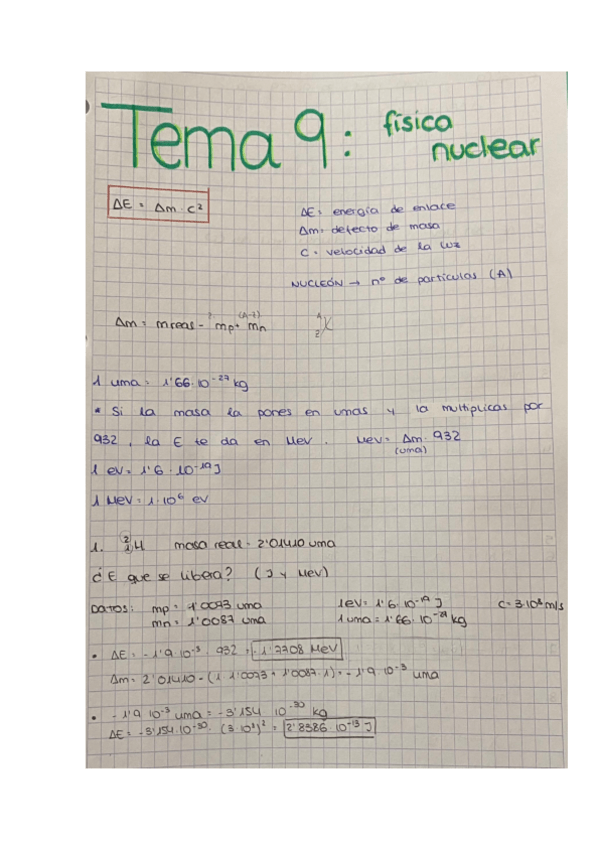 Tema 9: física nuclear
ΔE = Δm · c²
ΔE = energía de enlace
Δm = defecto de masa
C = velocidad de la luz
NUCLEÓN → nº de partículas (A)
Δm = mreas - mp + mn
(A-Z)
A
Z X
1 uma = 1'66·10⁻²⁷ kg
* Si la masa la pones en umas y la multiplicas por
932, la E te da en MeV. MeV = Δm · 932
(uma)
1 eV = 1'6 · 10⁻¹⁹ J
1 MeV = 1·10⁶ eV
1. ²₁H masa real = 2'01410 uma
¿E que se libera? (J y MeV)
DATOS: mp = 1'0073 uma 1eV = 1'6·10⁻¹⁹ J C = 3·10⁸ m/s
mn = 1'0087 uma 1uma = 1'66·10⁻²⁷ kg
• ΔE = -1'9·10⁻³ · 932 = -1'7708 MeV
Δm = 2'01410 - (1·1'0073 + 1'0087·1) = -1'9·10⁻³ uma
• -1'9 10⁻³ uma = -3'154 10⁻³⁰ kg
ΔE = -3'154·10⁻³⁰ · (3·10⁸)² = 2'8386 10⁻¹³ J